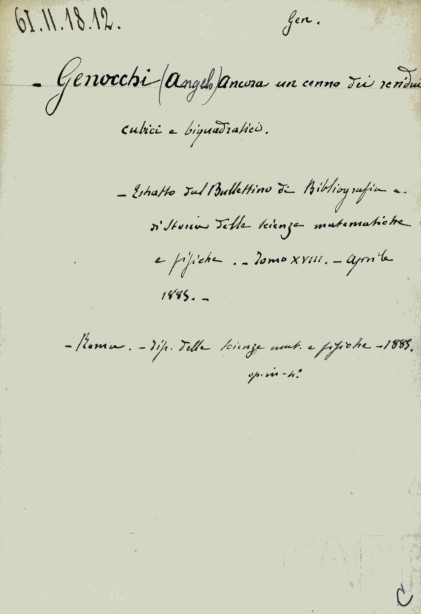 61.II.18.12.
Gen.
- Genocchi (Angelo) Ancora un cenno dei residui
cubici e biquadratici.
- Estratto dal Bullettino di Bibliografia e
di Storia delle scienze matematiche
e fisiche. - Tomo XVIII. - Aprile
1885. -
- Roma. - Tip. delle scienze mat. e fisiche - 1885.
op. in-4º
C